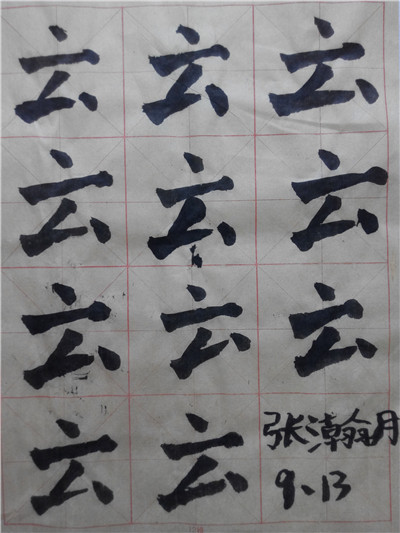 云云云
云云云
云云云
云云
张瀚月
9、13